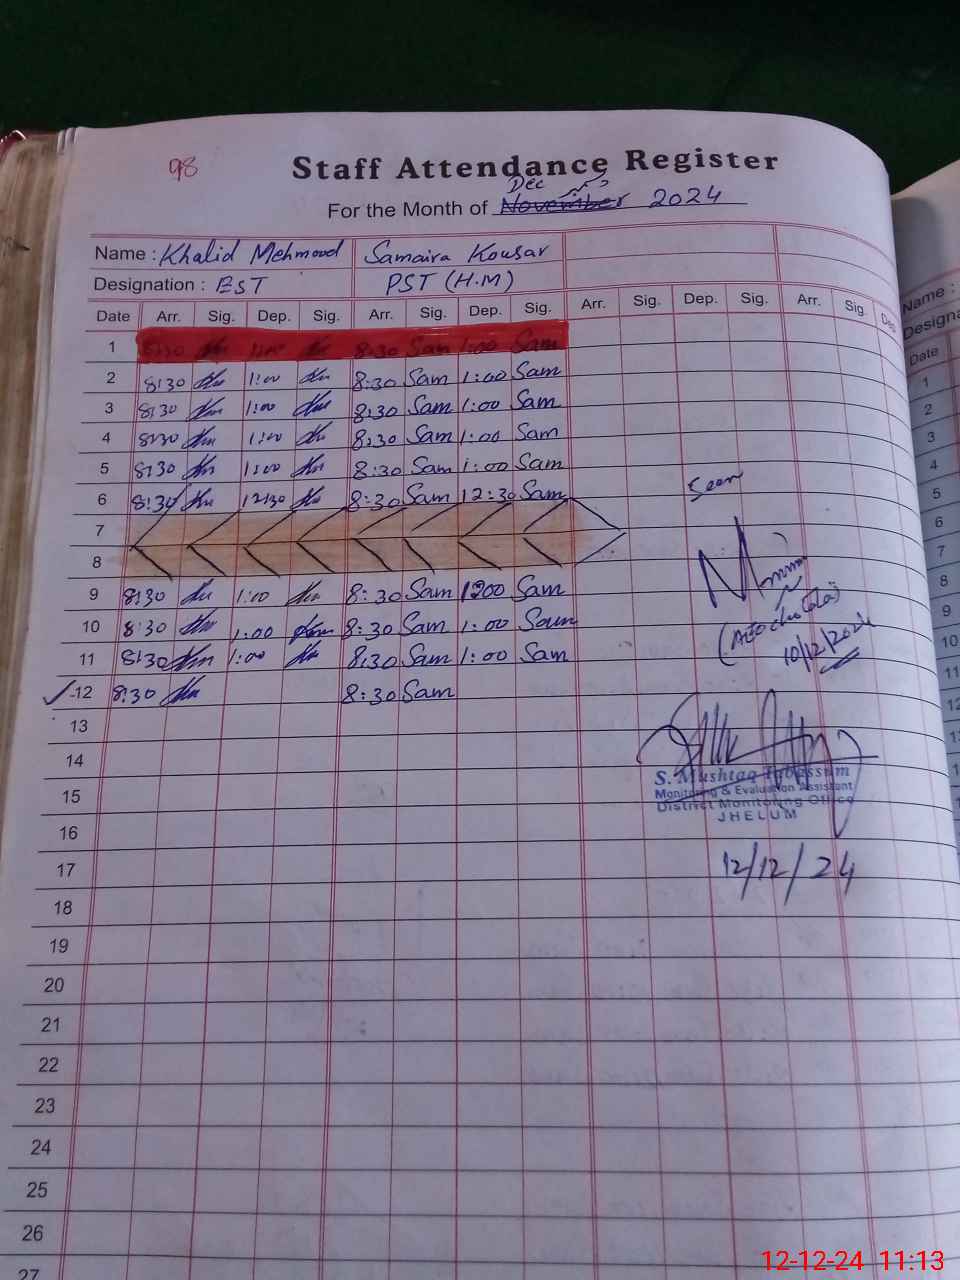 98
Staff Attendance Register
Dec
For the Month of November 2024
Name : Khalid Mehmood Samaira Kousar
Designation : EST PST (H.M)
Date Arr. Sig. Dep. Sig. Arr. Sig. Dep. Sig. Arr. Sig. Dep. Sig. Arr. Sig. Dep.
1 8:30 8:30 Sam 1:00 Sam
2 8:30 1:00 8:30 Sam 1:00 Sam
3 8:30 1:00 8:30 Sam 1:00 Sam
4 8:30 1:00 8:30 Sam 1:00 Sam
5 8:30 1:00 8:30 Sam 1:00 Sam
6 8:30 12:30 8:30 Sam 12:30 Sam
Seen
7
8
9 8:30 1:00 8:30 Sam 1:00 Sam
10 8:30 1:00 8:30 Sam 1:00 Sam
10/12/2024
11 8:30 1:00 8:30 Sam 1:00 Sam
12 8:30 8:30 Sam
13
14
S. Mushtaq Tabassum
Monitoring & Evaluation Assistant
District Monitoring Office
JHELUM
15
16
17
12/12/24
18
19
20
21
22
23
24
25
26
27
Name :
Designa
Date
1
2
3
4
5
6
7
8
9
10
11
12
12-12-24 11:13